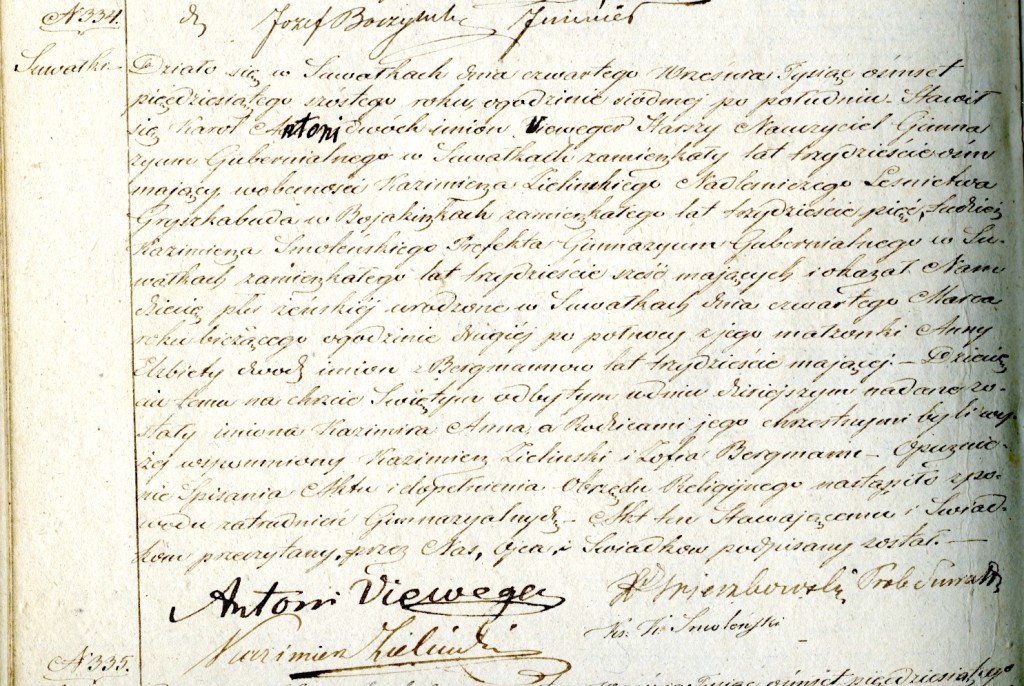 N 334.
Józef Boczyluk
Suwałki.
Działo się w Suwałkach dnia czwartego Września Tysiąc ośmset
pięćdziesiątego szóstego roku, o godzinie siódmej po południu. Stawił
się Karol Antoni dwóch imion Vieweger Starszy Nauczyciel Gimna
zyum Gubernialnego w Suwałkach zamieszkały lat trzydzieście ośm
mający, w obecności Kazimierza Zielinskiego Nadleśniczego Leśnictwa
Gryszkabuda w Bojakiszkach zamieszkałego lat trzydzieście pięć, tudzież
Kazimierza Smoleńskiego Prefekta Gimnazyum Gubernialnego w Su-
wałkach zamieszkałego lat trzydzieście sześć mających, i okazał Nam
dziecię płci żeńskiéj urodzone w Suwałkach dnia czwartego Marca
roku bieżącego o godzinie drugiéj po północy z jego małżonki Anny
Elżbiety dwóch imion z Bergmannow lat trzydzieście mającej. — Dziecię
ciu temu na chrzcie Świętym odbytym w dniu dzisiejszym nadane zo-
stały imiona Kazimira Anna, a Rodzicami jego chrzestnymi byli wy
żej wspomniony Kazimierz Zielinski i Zofia Bergmann. — Opuznie-
nie Spisania Aktu i dopełnienia Obrzędu Religijnego nastąpiło z po-
wodu zatrudnień Gimnazyalnych. — Akt ten Stawającemu i Świad-
kom przeczytany, przez Nas, Ojca, i Świadków podpisany został. —
Antoni Vieweger
Prob Suwalski
Ks. K. Smoleński
Kazimierz Zieliński
N 335.
Tysiąc ośmset pięćdziesiątego